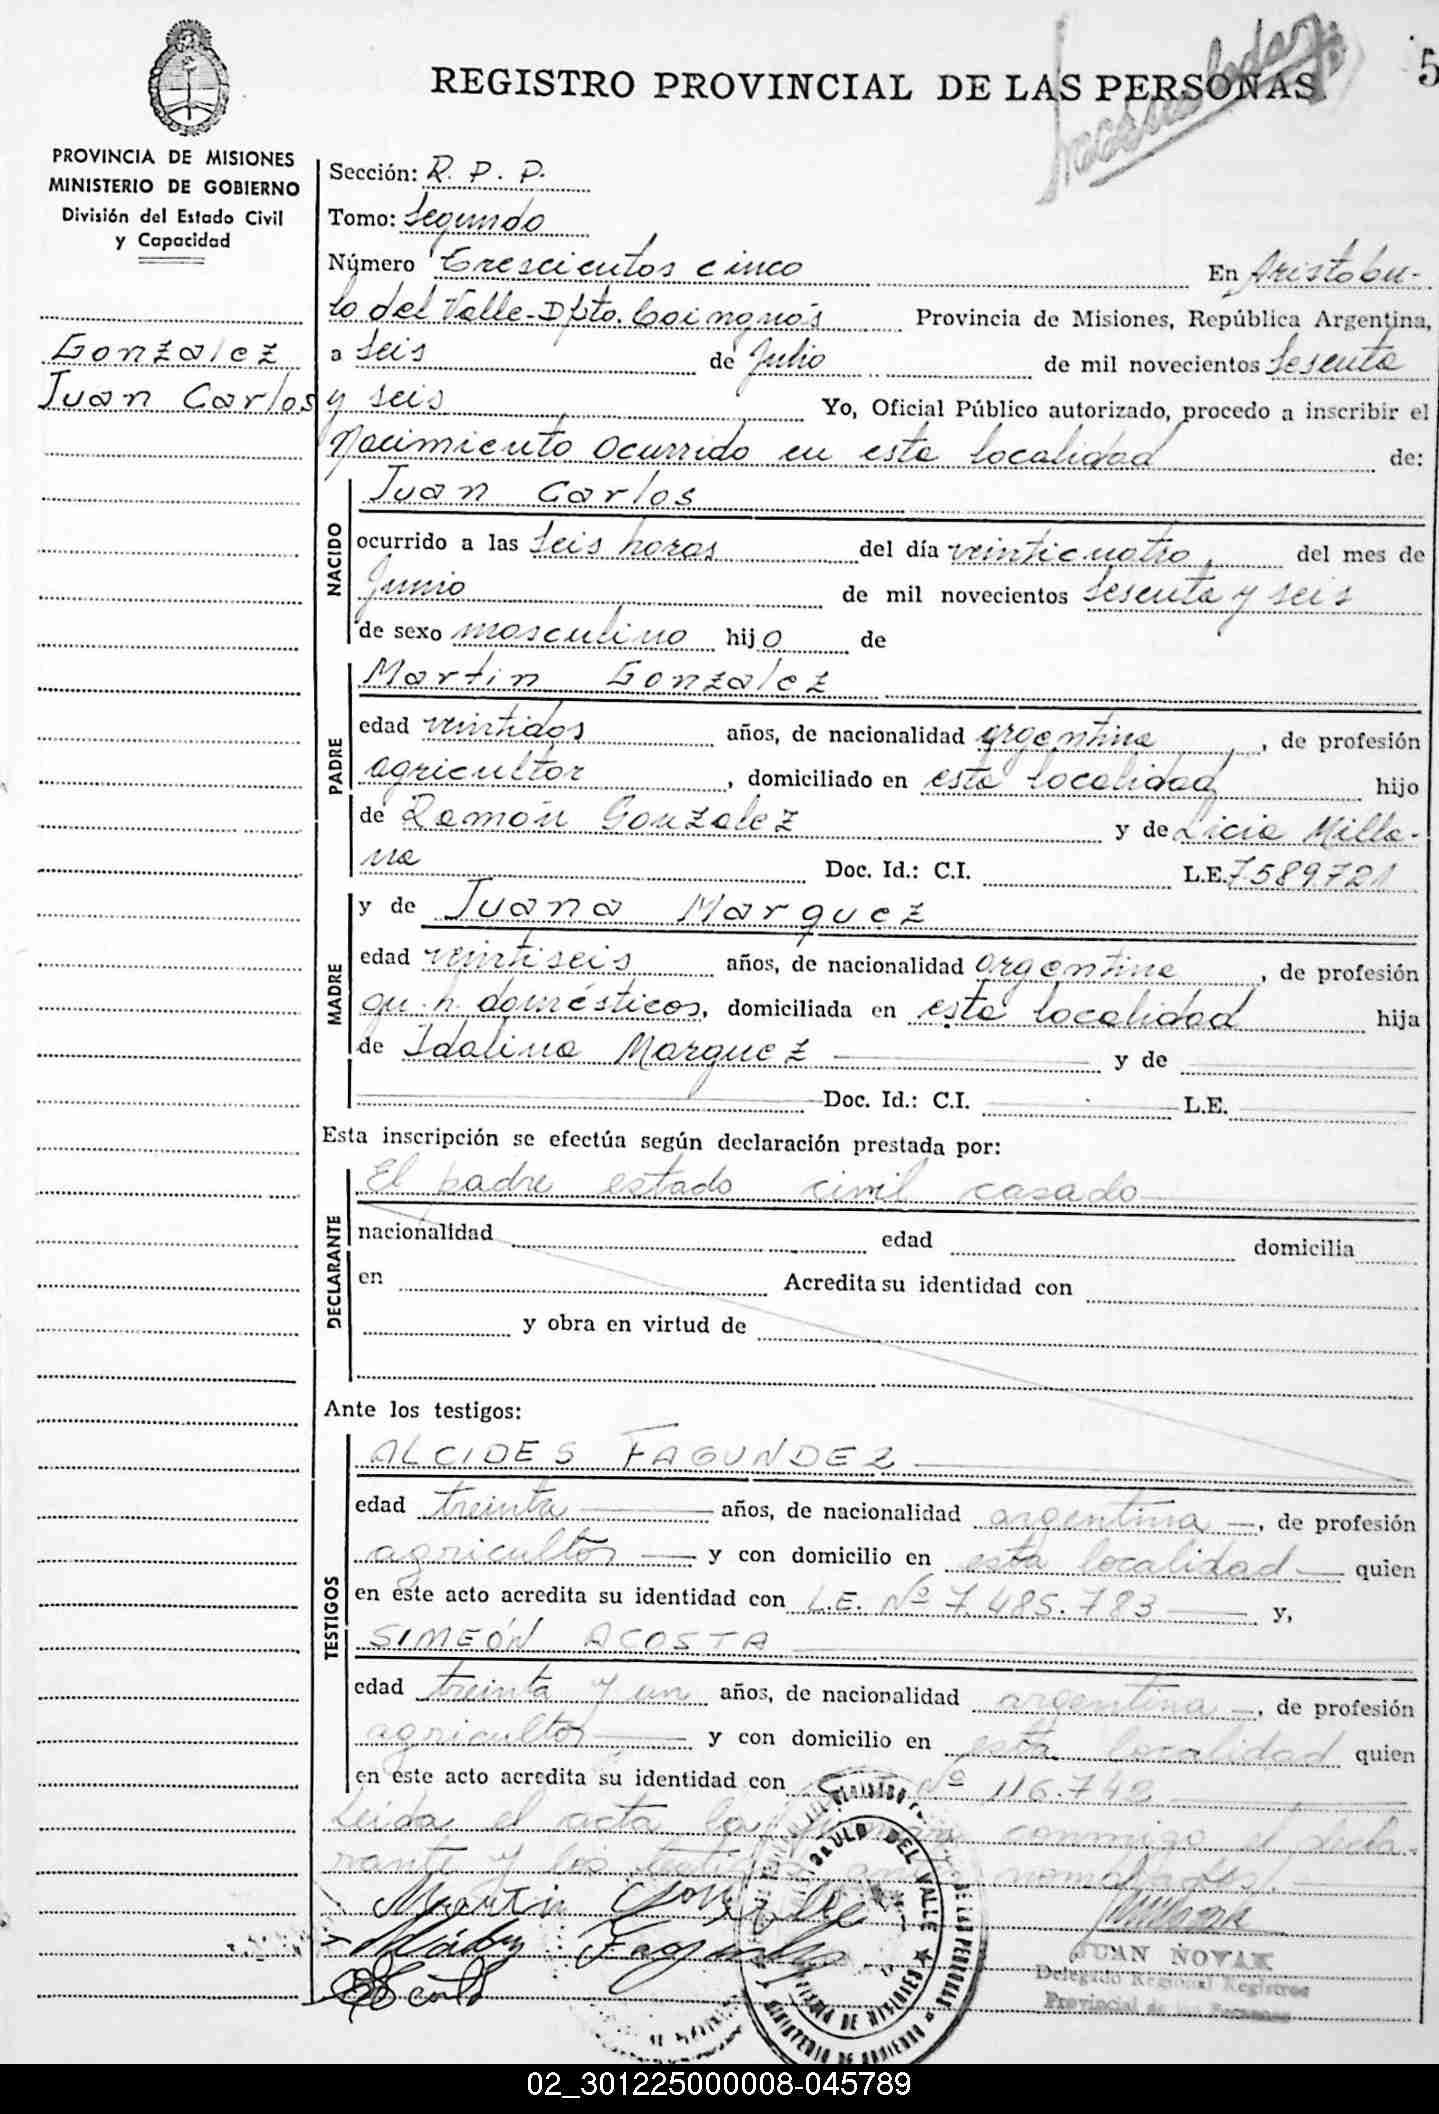 REGISTRO PROVINCIAL DE LAS PERSONAS
5
PROVINCIA DE MISIONES
MINISTERIO DE GOBIERNO
División del Estado Civil
y Capacidad
Gonzalez
Juan Carlos
Sección: R. P. P.
Tomo: Segundo
Número Trescientos cinco En Aristobu-
lo del Valle-Dpto. Caingnás Provincia de Misiones, República Argentina,
a seis de Julio de mil novecientos sesenta
y seis Yo, Oficial Público autorizado, procedo a inscribir el
Nacimiento ocurrido en esta localidad de:
NACIDO
Juan Carlos
ocurrido a las seis horas del día veinticuatro del mes de
Junio de mil novecientos sesenta y seis
de sexo masculino hijo de
PADRE
Martin Gonzalez
edad veintidos años, de nacionalidad argentina, de profesión
agricultor, domiciliado en esta localidad hijo
de Ramón Gonzalez y de Licia Milla-
na Doc. Id.: C.I. L.E. 7589721
MADRE
y de Juana Marquez
edad veintiseis años, de nacionalidad argentina, de profesión
qu. h. domésticos, domiciliada en esta localidad hija
de Idalina Marquez y de
Doc. Id.: C.I. L.E.
Esta inscripción se efectúa según declaración prestada por:
DECLARANTE
El padre estado civil casado
nacionalidad edad domicilia
en Acredita su identidad con
y obra en virtud de
Ante los testigos:
TESTIGOS
ALCIDES FAGUNDEZ
edad treinta años, de nacionalidad argentina, de profesión
agricultor y con domicilio en esta localidad quien
en este acto acredita su identidad con L.E. Nº 7.485.783 y,
SIMEÓN ACOSTA
edad treinta y un años, de nacionalidad argentina, de profesión
agricultor y con domicilio en esta localidad quien
en este acto acredita su identidad con Nº 116.742
Leida el acta la firman conmigo el decla-
rante y los testigos
Martin Gonzalez
JUAN NOVAK
Delegado Regional Registros
Provincial de las Personas
02_301225000008-045789